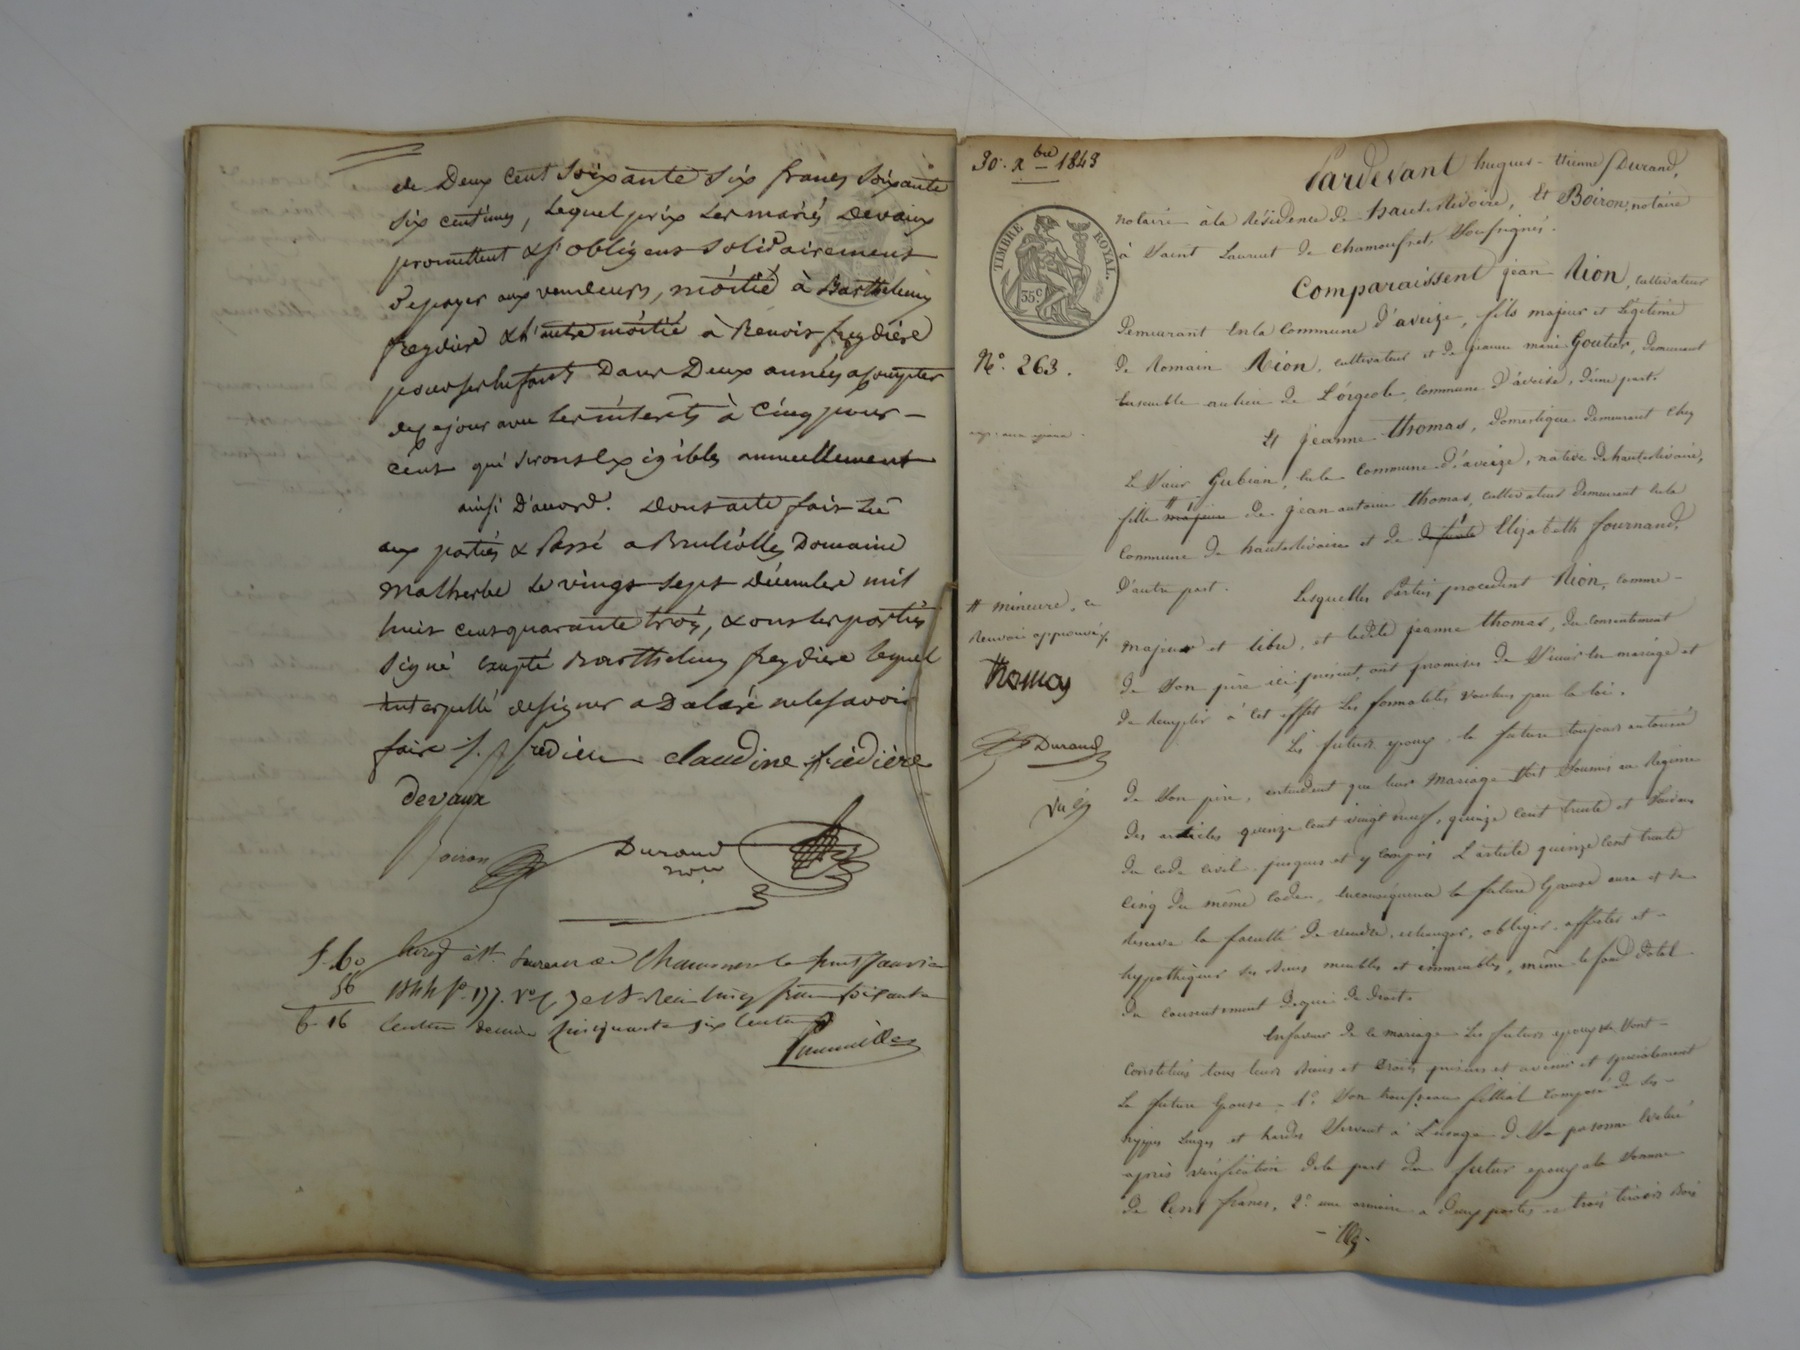 de Deux cent Soixante Six francs Soixante
Six centimes, lequel prix les mariés Devaux
promettent & s'obligent solidairement
de payer aux vendeurs, moitié à Barthelemy
freydiere & l'autre moitié à Benoit freydiére
pour les enfants Dans Deux années a compter
de ce jour avec les intérêts à Cinq pour -
cent qui seront exigibles annuellement
ainsi D'accord. Dont acte fait Lu
aux parties & Passé a Brulliolles Domaine
Malherbe le vingt sept décembre mil
huit cent quarante trois, & ont les parties
signé excepté Barthelemy freydiere lequel
interpellé de signer a Déclaré ne le savoir
faire ./. fredière claudine frédière
devaux
Boiron Durand
nore
5.60 Enreg. à St. Laurent de Chamousset le huit Janvier
56 1844 fo. 177. Vo. C. 7 et 8. Reçu Cinq francs soixante
6-16 Centimes decime Cinquante six Centimes
30. Xbre 1843
TIMBRE ROYAL.
35c
No. 263.
Pardevant hugues-Etienne Durand,
notaire à la Résidence de hauterivoire, Et Boiron, notaire
à Saint Laurent de Chamousset, Soussignés.
Comparaissent jean Rion, cultivateur
Demeurant en la Commune d'aveize, fils majeur et Légitime
de Romain Rion, cultivateur et de jeanne marie Goutier, demeurant
Ensemble au lieu de L'orgeole commune d'aveize, d'une part.
Et jeanne Thomas, Domestique demeurant chez
Le Sieur Gubian, en la Commune d'aveize, native de hauterivoire,
fille # majeure de jean antoine Thomas, cultivateur demeurant en la
Commune de hauterivoire et de défunte Elizabeth fournand,
D'autre part. Lesquelles Parties procedent Rion, comme -
# mineure, ce
Renvoi approuvé
Thomas
Durand
majeur et libre, et ladite jeanne Thomas, du consentement
de Son père ici présent, ont promises de S'unir en mariage et
de Remplir à cet effet les formalités voulues par la loi.
Les futurs epoux, la future toujours autorisée
de Son père, entendent que leur Mariage Soit Soumis au Régime
des articles quinze cent vingt neuf, quinze cent trente et Suivans
du code civil jusques et y compris L'article quinze cent trente
cinq du même Code, en conséquence la future Epouse aura et se
reserve la faculté de vendre, echanger, obliger, affecter et -
hypothéquer Ses Biens meubles et immeubles, même le fond dotal
du consentement de qui de droit.
En faveur de ce mariage Les futurs epoux Se Sont -
Constitués tous leurs Biens et Droits présens et avenir et spécialement
La future Epouse. 1o. Son trousseau fillial composé de Ses -
nyppes Linges et hardes Servant à L'usage de Sa personne évalué
après vérification de la part du futur epoux à la Somme
de Cent francs, 2o. une armoire a deux portes et trois tiroirs Bois